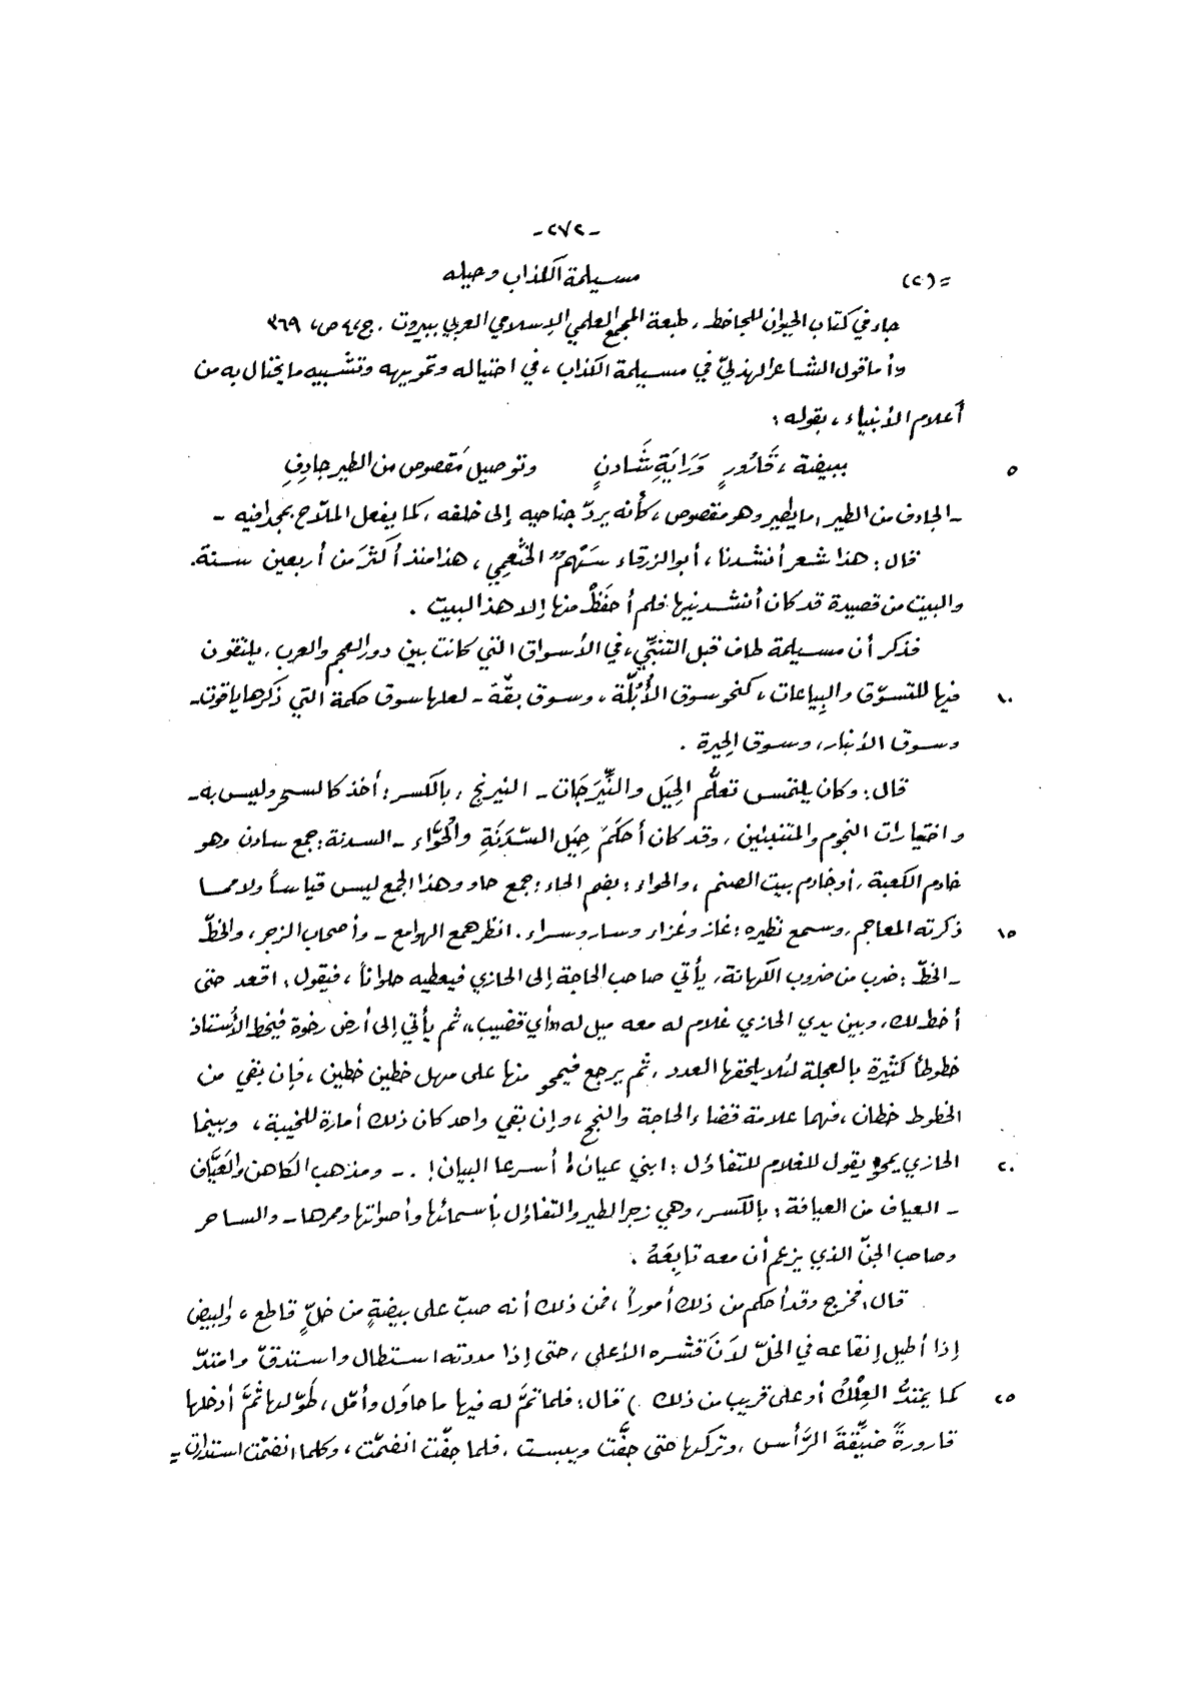 -٢٧٢-
= (٢) مسيلمة الكذاب وحيله
جاء في كتاب الحيوان للجاحظ، طبعة المجمع العلمي الإسلامي العربي ببيروت. ج، ٤ ص، ٣٦٩
وأما قول الشاعر الهذليّ في مسيلمة الكذاب، في احتياله وتمويهه وتشبيه ما يحتال به من
أعلام الأنبياء، بقوله:
٥ ببيضة، قَارُورٍ وَرَايَةِ شَادنٍ وتوصيل مَقصوص من الطير جادِفِ
- الجادف من الطير، ما يطير وهو مقصوص، كأنه يردّ جناحيه إلى خلفه، كما يفعل الملاّح بمجدافيه -
قال: هذا شعر أنشدنا، أبو الزرقاء سَهْمٌ الخثعمِي، هذا منذ أكثرَ من أربعين سنة.
والبيت من قصيدة قد كان أنشدنيها فلم أحفَظْ منها إلا هذا البيت.
فذكر أن مسيلمة طاف قبل التنبِّي، في الأسواق التي كانت بين دور العجم والعرب، يلتقون
١٠ فيها للتسوّق والبِياعات، كنحو سوق الأُبُلّة، وسوق بقّة - لعلها سوق حكمة التي ذكرها ياقوت -
وسوق الأنبار، وسوق الحِيرة.
قال: وكان يلتمس تعلُّم الحِيَل والنِّيَرَجَات - النيرنج، بالكسر: أخذ كالسحر وليس به -
واختيارات النجوم والمتنبئين، وقد كان أحكَمَ حِيَل السّدَنَةِ والحُوَّاء - السدنة: جمع سادن وهو
خادم الكعبة، أو خادم بيت الصنم، والحواء: بضم الحاء: جمع حاو وهذا الجمع ليس قياساً ولا مما
١٥ ذكرته المعاجم، وسمع نظيره: غاز وغزاء وسار وسراء. انظر همع الهوامع - وأصحاب الزجر، والخطّ
- الخطّ: ضرب من ضروب الكهانة، يأتي صاحب الحاجة إلى الحازي فيعطيه حلواناً، فيقول: اقعد حتى
أخط لك، وبين يدي الحازي غلام له معه ميل له «أي قضيب» ثم يأتي إلى أرض رخوة فيخط الأستاذ
خطوطاً كثيرة بالعجلة لئلا يلحقها العدد، ثم يرجع فيمحو منها على مهل خطين خطين، فإن بقي من
الخطوط خطان، فهما علامة قضاء الحاجة والنجح، وإن بقي واحد كان ذلك أمارة للخيبة، وبينما
٢٠ الحازي يمحو يقول للغلام للتفاؤل: ابني عيان! أسرعا البيان! . - ومذهب الكاهن والعَيَّاف
- العياف من العيافة: بالكسر، وهي زجر الطير والتفاؤل بأسمائها وأصواتها وممرها - والساحر
وصاحب الجنّ الذي يزعم أن معه تابِعَهُ.
قال: فخرج وقد أحكم من ذلك أموراً، فمن ذلك أنه صبّ على بيضةٍ من خلٍّ قاطع، والبيض
إذا أطيل إنقاعه في الخلّ لاَنَ قشره الأعلى، حتى إذا مددته استطال واستدقّ وامتدّ
٢٥ كما يمتدُّ العِلْكُ أو على قريب من ذلك ) قال: فلما تمَّ له فيها ما حاوَل وأمّل، طوّلها ثُمَّ أدخلها
قارورةً ضيِّقَةَ الرَّأس، وتركها حتى جفَّت ويبست، فلما جفّت انضمّت، وكلما انضمّت استدارت =